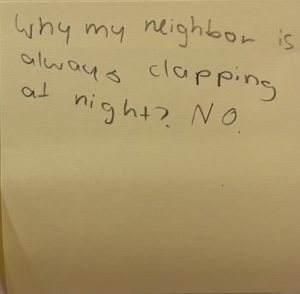 Why my neighbor is
always clapping
at night? NO.